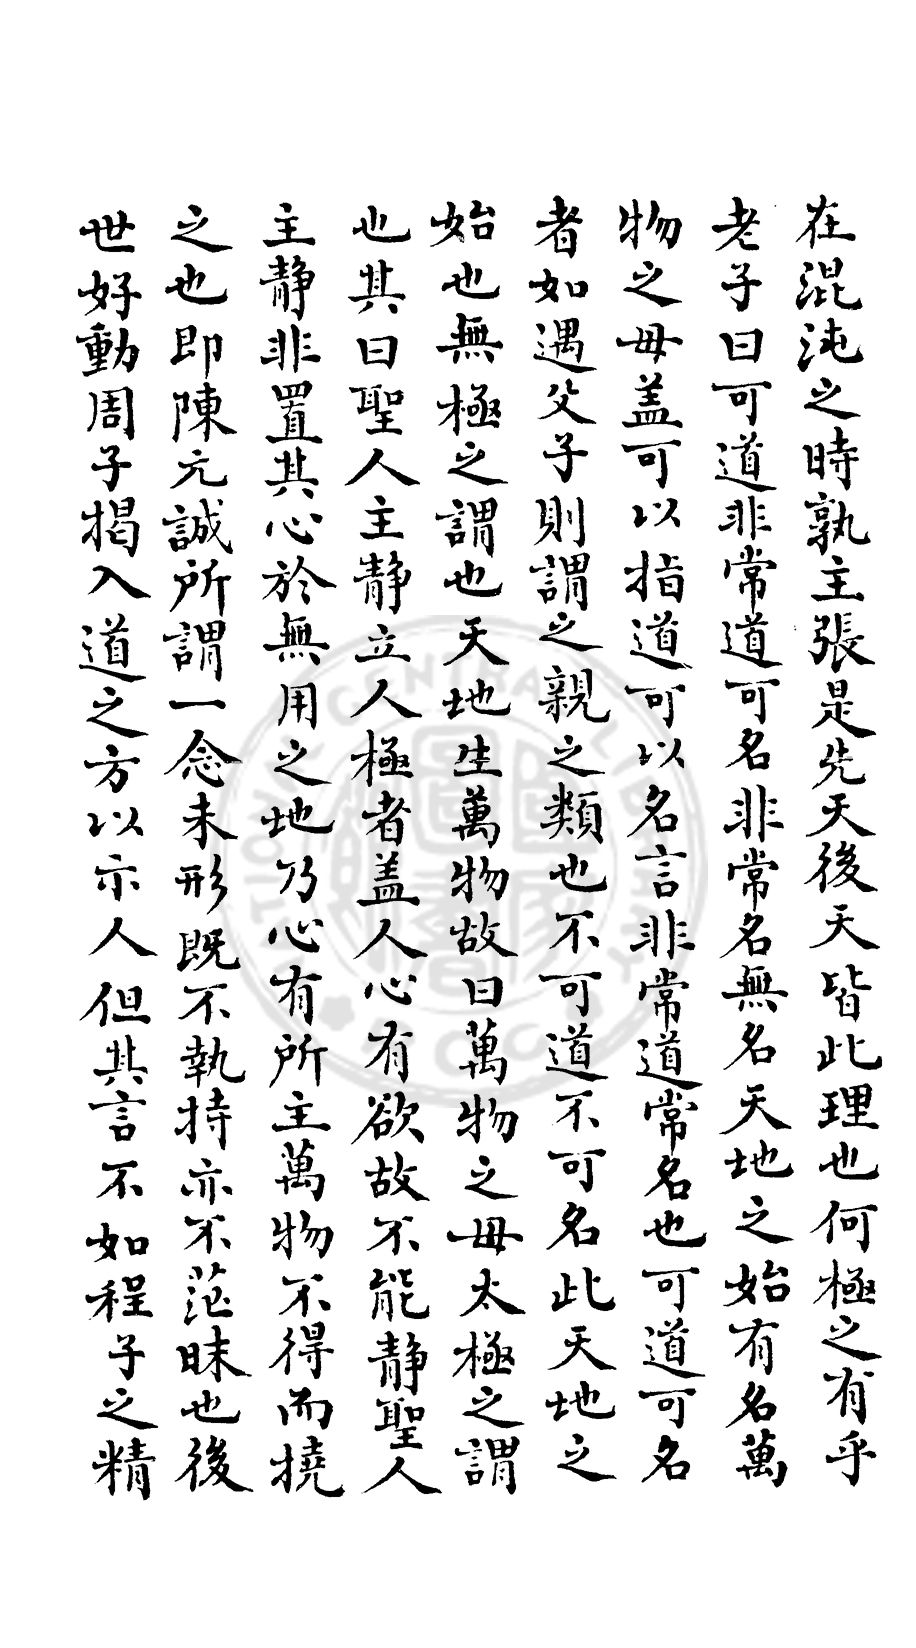 在混沌之時孰主張是先天後天皆此理也何極之有乎
老子曰可道非常道可名非常名無名天地之始有名萬
物之毋盖可以指道可以名言非常道常名也可道可名
者如遇父子則謂之親之類也不可道不可名此天地之
始也無極之謂也天地生萬物故曰萬物之毋太極之謂
也其曰聖人主静立人極者盖人心有欲故不能静聖人
主静非置其心於無用之地乃心有所主萬物不得而撓
之也即陳元誠所謂一念未形既不執持亦不茫昧也後
世好動周子揭入道之方以示人但其言不如程子之精